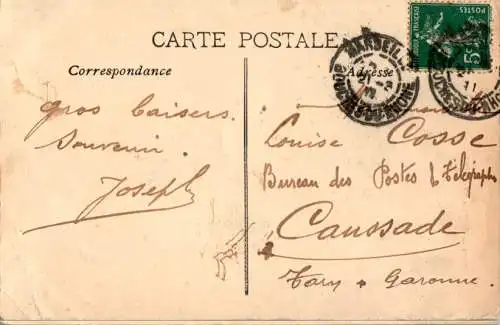 CARTE POSTALE
Correspondance
Adresse
POSTES
5c
MARSEILLE
21-3
BOUCHES-DU-RHONE
11
gros baisers
Souvenir
Joseph
Louise Cosse
Bureau des Postes & Télégraphes
Caussade
Tarn & Garonne.